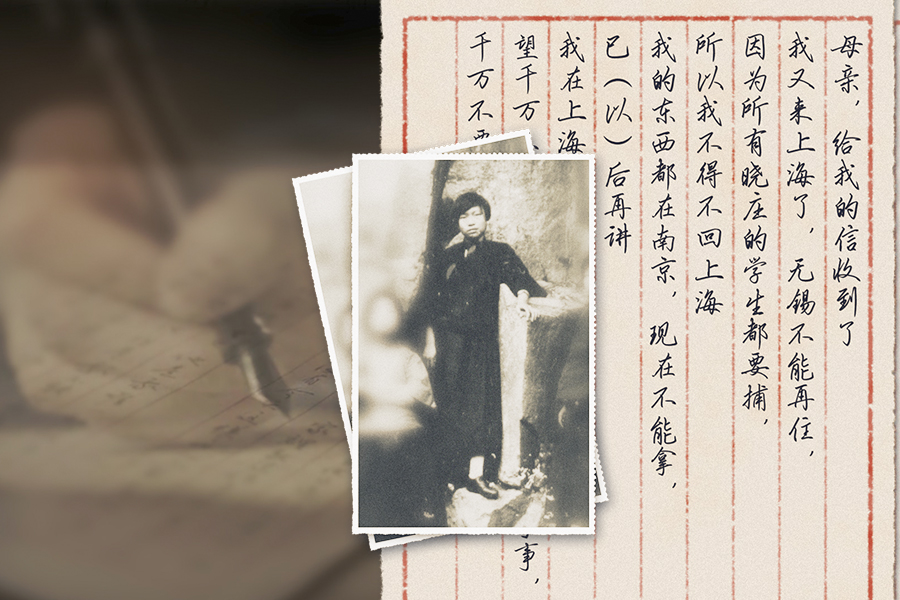 母亲，给我的信收到了
我又来上海了，无锡不能再住，
因为所有晓庄的学生都要捕，
所以我不得不回上海
我的东西都在南京，现在不能拿，
已（以）后再讲
我在上海
望千万
事，
千万不要